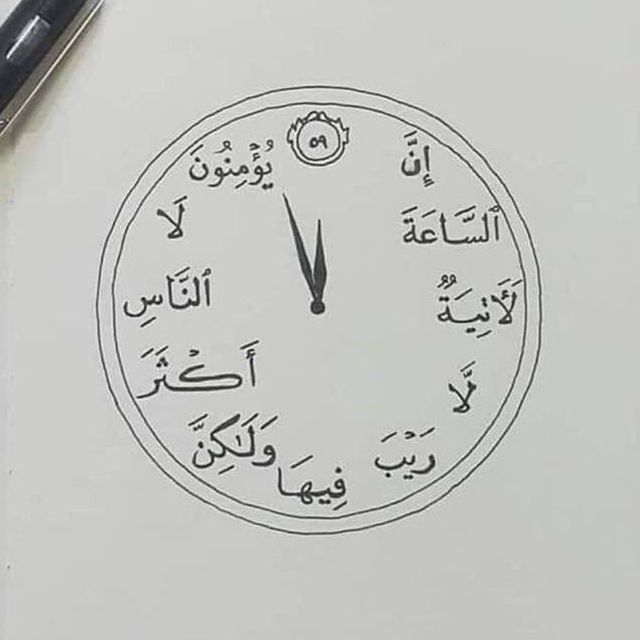 ٥٩
إِنَّ
ٱلسَّاعَةَ
لَأٓتِيَةٌ
لَّا
رَيْبَ
فِيهَا
وَلَٰكِنَّ
أَكْثَرَ
ٱلنَّاسِ
لَا
يُؤْمِنُونَ